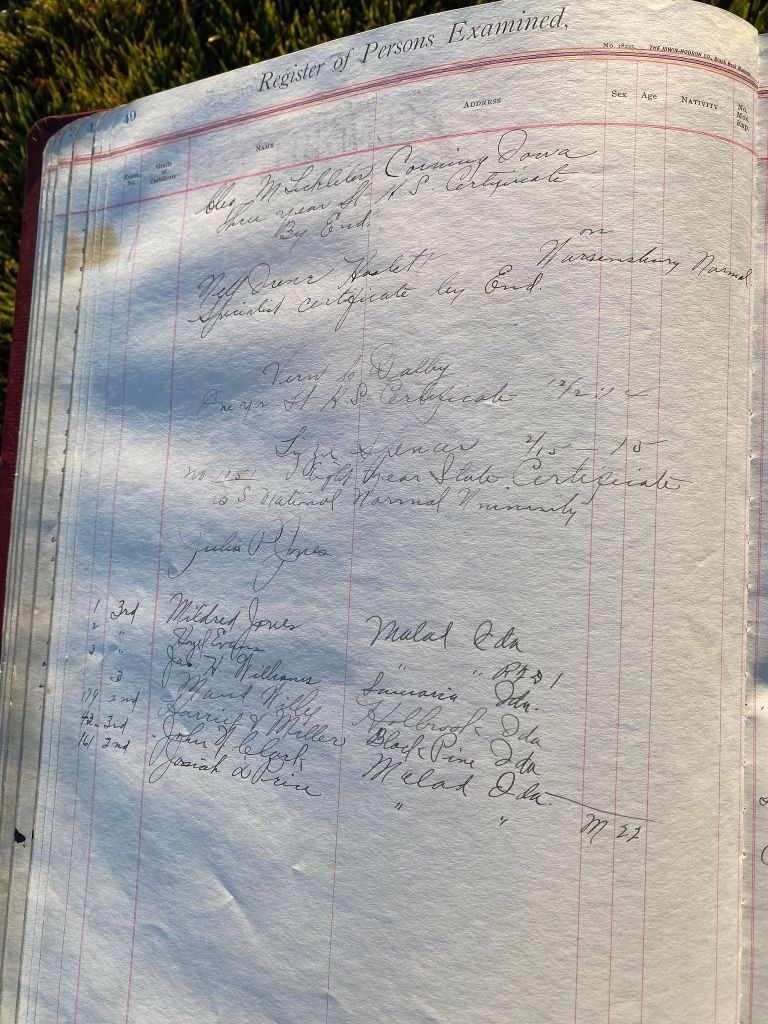 49
Register of Persons Examined,
No. 18225. THE IRWIN-HODSON CO.,
Exam. No. Grade of Certificate NAME ADDRESS Sex Age NATIVITY No. Mos. Exp.
M Corning Iowa
Three year St H S Certificate
By End.
on
Nell Irene Normal
Specialist certificate by End.
Vern C Dalby
One yr St H S Certificate 12/2
Spencer 2/15 - 15
No Eight Year State Certificate
National Normal University
Julia P Jones
1 3rd Mildred Jones Malad Ida
2 " Hazel Evans " " RFD 1
3 " Jas H Williams Samaria Ida.
3 Maud Willey Holbrook Ida
179 2nd Harriet J Miller Black Pine Ida
3rd John N Clark Malad Ida.
161 2nd Josiah L Price " " M 22